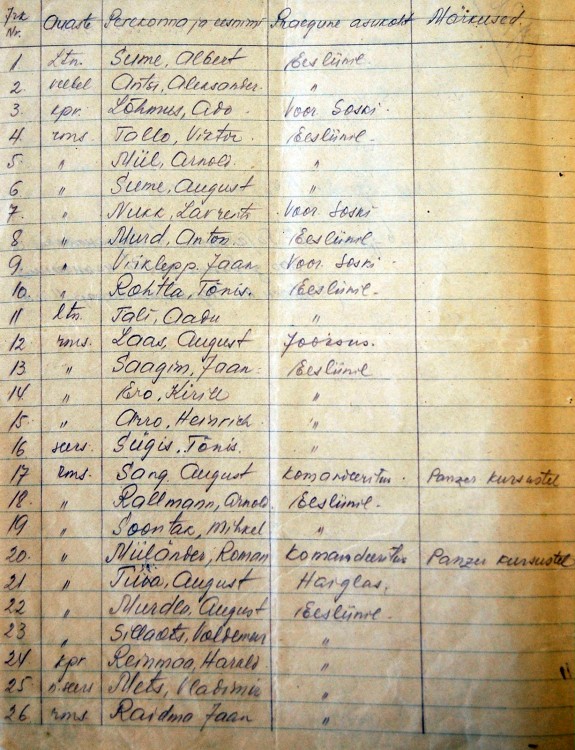 Jrk Nr. Auaste Perekonna ja eesnimi Praegune asukoht Märkused.
1 Ltn. Sume, Albert Eesliinil
2 veebel Antsi, Aleksander. "
3 kpr. Lõhmus, Ado Voor. Soski.
4 rms. Tallo, Viktor. Eesliinil.
5. " Müil, Arnold. "
6 " Sume, August "
7. " Nukk, Lavrenti Voor. Soski
8. " Murd, Anton. Eesliinil
9. " Viiklepp. Jaan Voor. Soski.
10. " Rohtla, Tõnis. Eesliinil.
11 ltn. Tali, Aadu "
12 rms. Laas, August
13 " Saagim, Jaan. Eesliinil
14 " Ero, Kirill "
15. " Arro, Heinrich. "
16 seers. Sügis, Tõnis. "
17 rms. Sang. August Komandeeritus. Panzer kursustel
18. " Rallmann, Arnold. Eesliinil.
19 " Soontak, Mihkel "
20. " Müüländer, Roman Komandeeritus Panzer kursustel
21 " August Harglas.
22 " Murdla, August Eesliinil.
23 " Sillaots, Voldemar "
24 kpr Reinmaa, Harald. "
25 n.seers Mets, Vladimir "
26. rms Raidma Jaan "